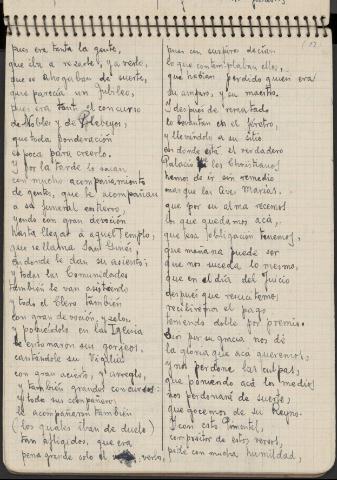 pues era tanta la gente,
que iba a rezarle, y a verle,
que se ahogaban de suerte,
que parecía un Jubileo,
pues era tanto el concurso
de Nobles y de Plebeyos,
que toda ponderación
es poca para creerlo.
Y por la tarde lo sacan
con mucho acompañamiento
de gentes, que le acompañan
a su funeral entierro,
yendo con gran devoción
hasta llegar á aquel Templo,
que se llama San Ginés,
en donde le dan su asiento:
y todas las Comunidades
también le van asistiendo
y todo el Clero también
con gran devoción, y celo.
y poniéndolo en la Iglesia
le entonaron sus gorjeos,
cantándole su Vigilia
con gran acierto, y arreglo,
y también grandes concursos:
y todo sus compañeros
le acompañaron también
(los quales iban de duelo)
tan afligidos, que era
pena grande solo el verlos,
(12)
pues con suspiros decían
lo que contemplaban ellos,
que habían perdido quien era
su amparo, y su maestro.
y después de rematado
lo levantan en el féretro,
y llevándolo a su sitio
en donde está el verdadero
Palacio de los Christianos,
hemos de ir sin remedio
mas que las Aves Marías.
que por su alma recemos
los que quedamos acá,
que esa obligación tenemos,
que mañana puede ser
que nos suceda lo mesmo,
que en el día del Juicio
después que resucitemos,
recibiremos el pago
teniendo doble por premio.
Dios por su gracia nos dé
la gloria que acá queremos,
y nos perdone las culpas,
que poniendo acá los medios
nos perdonará de suerte,
que gocemos de su Reyno.
Y con esto Pimentel,
compositor de estos versos,
pide con mucha humildad,